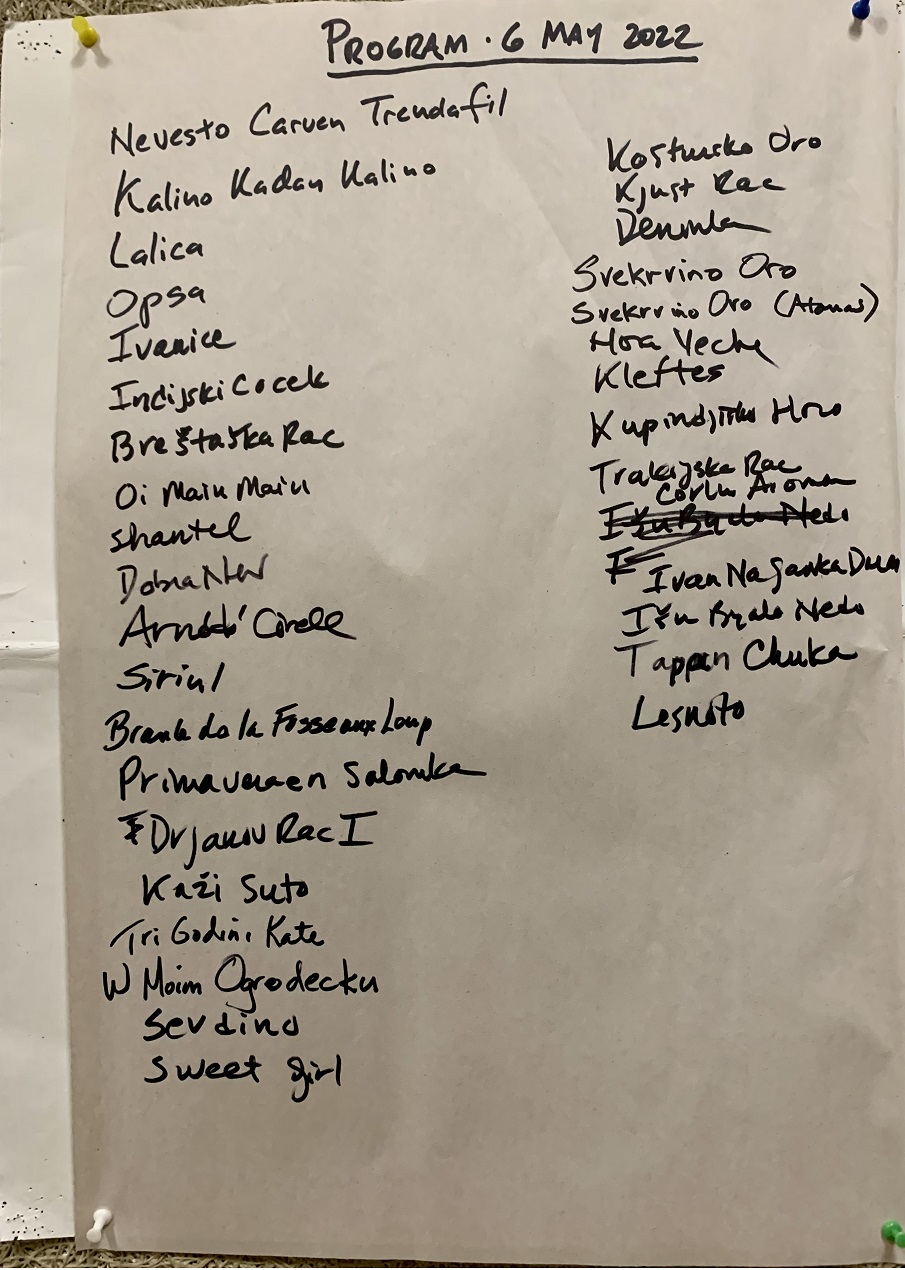 PROGRAM · 6 MAY 2022
Nevesto Carven Trendafil
Kalino Kadan Kalino
Lalica
Opsa
Ivanice
Indijski Cocek
Breštaška Rac
Oi Main Main
Shantel
Dobra Nev
Arnold' Circle
Siriul
Branle de la Fosse aux Loup
Primavera en Salonika
Drjanov Rac I
Kaži Suto
Tri Godini Kate
W Moim Ogrodecku
Sevdino
Sweet Girl
Kostursko Oro
Kjust Rac
Denninka
Svekrvino Oro
Svekrvino Oro (Atanas)
Hora Veche
Kleftes
Kupindjiško Horo
Trakijska Rac
Corlu Aroman
Išu Byalo Nedo
Ivan Na Janka Duma
Išu Byalo Nedo
Tappan Chuka
Lesnoto